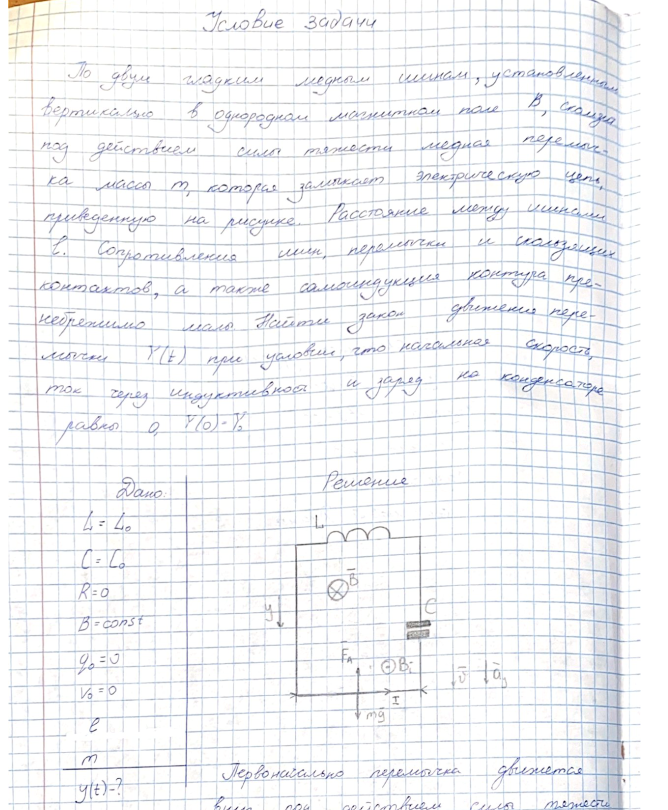 Условие задачи
По двум гладким медным шинам, установленным
вертикально в однородном магнитном поле B, скользя
под действием силы тяжести медная перемыч-
ка массы m, которая замыкает электрическую цепь,
приведенную на рисунке. Расстояние между шинами
l. Сопротивления шин, перемычки и скользящих
контактов, а также самоиндукция контура пре-
небрежимо малы. Найти закон движения пере-
мычки Y(t) при условии, что начальная скорость,
ток через индуктивность и заряд на конденсаторе
равны 0, Y(0)=Y₀
Дано
L = L₀
C = C₀
R = 0
B = const
q₀ = 0
v₀ = 0
l
m
y(t)=?
Решение
L
B
y
C
F_A
B_i
I
mg
v
a_y
Первоначально перемычка движется
вниз под действием силы тяжести